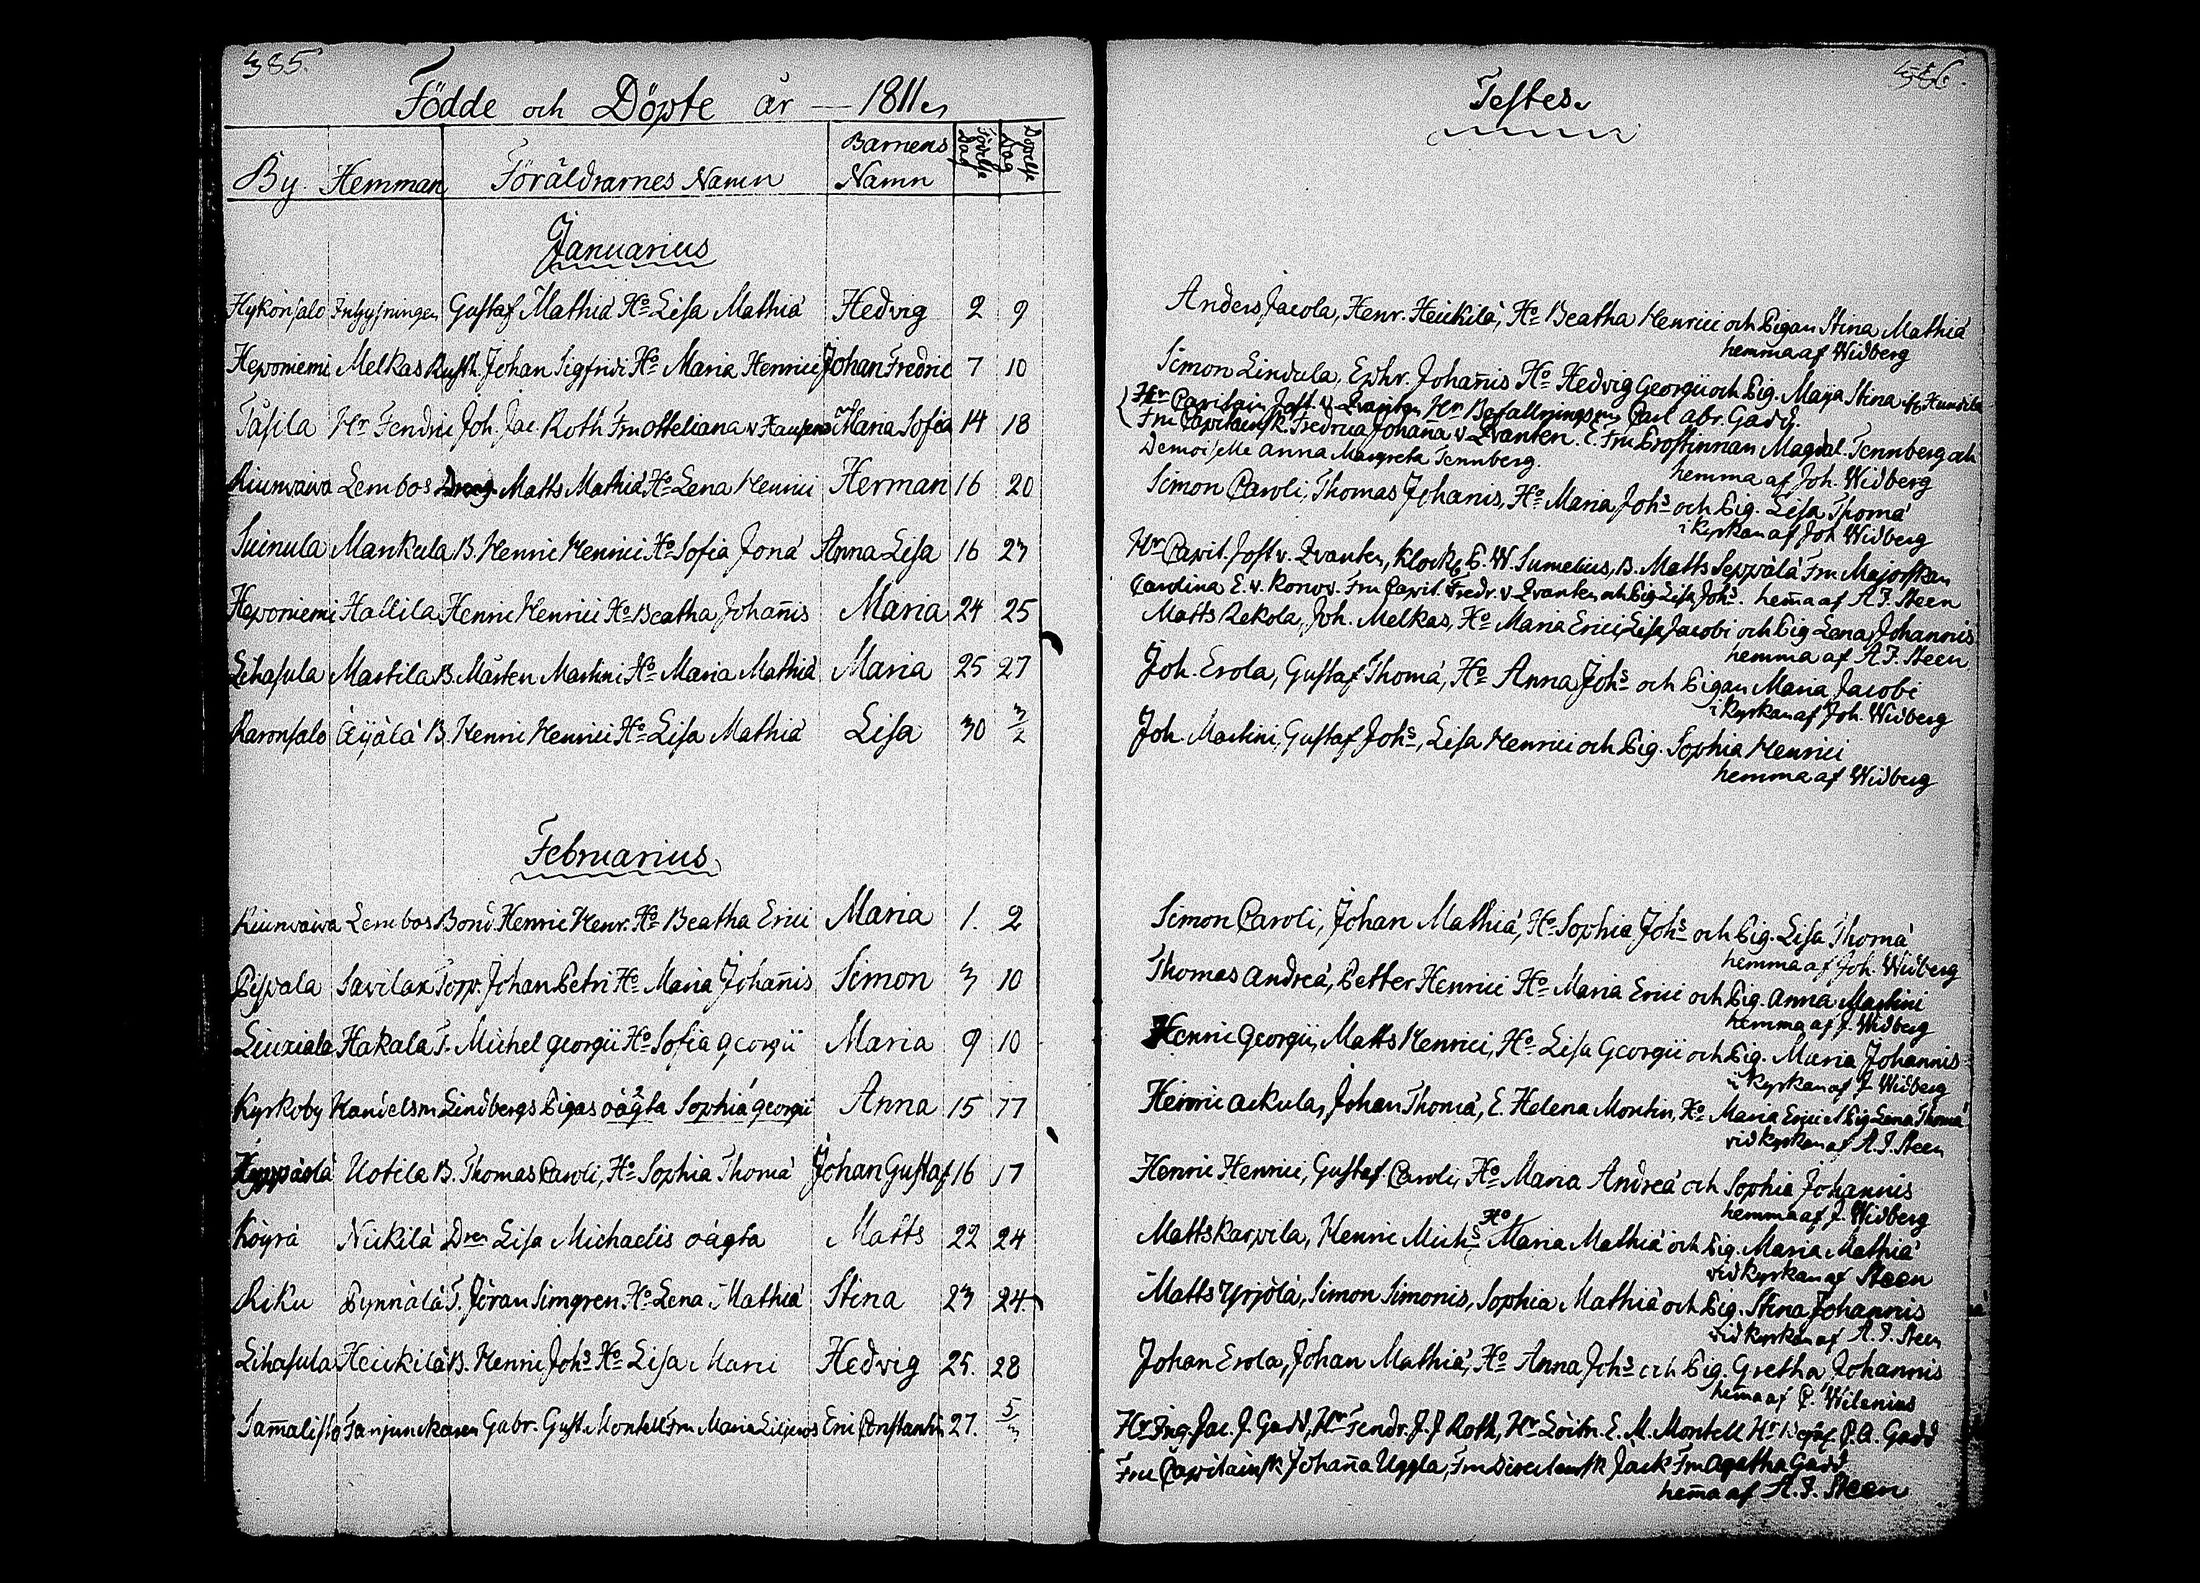 385.
Födde och Döpte år — 1811
By Hemman Föräldrarnes Namn Barnens Namn Födelse Dag Döpelse Dag
Januarius
Hykönsalo Inhysningen Gustaf Mathiæ Ho Lisa Mathiæ Hedvig 2 9
Heponiemi Melkas Rusth. Johan Sigfridi Ho Maria Henrici Johan Fredric 7 10
Tåsila Hr Fendric Joh. Jac. Roth Fru Otteliana v Maria Sofia 14 18
Riunvaiva Lembos Matts Mathiæ, Ho Lena Henrici Herman 16 20
Suinula Mankula B. Henric Henrici Ho Sofia Jonæ Anna Lisa 16 23
Heponiemi Hallila Henric Henrici Ho Beatha Johañis Maria 24 25
Lihasula Martila B. Mårten Martini Ho Maria Mathiæ Maria 25 27
Raronsalo Äijälä B. Henric Henrici Ho Lisa Mathiæ Lisa 30 3/2
Februarius
Riunvaiva Lembos Bond. Henric Henr. Ho Beatha Erici Maria 1. 2
Pispala Savilax Torp. Johan Petri Ho Maria Johañis Simon 3 10
Liuxiala Hakala T. Michel Georgii Ho Sofia Georgii Maria 9 10
Kyrkoby Handelsm Lindbergs Pigas oägta Sophiæ Georgii Anna 15 17
Uotila B. Thomas Caroli, Ho Sophia Thomæ Johan Gustaf 16 17
Köyrä Nickilä Dren Lisa Michaelis oägta Matts 22 24
Riku Pynnälä T. Jöran Simgren Ho Lena Mathiæ Stina 23 24
Lihasula Heickilä B. Henric Johs Ho Lisa Marci Hedvig 25. 28
Sam̃alisto Fanjunckaren Gabr. Gust. Montell Fru Maria Eric Constantin 27. 5/3
386.
Testes
Anders Jacola, Henr. Heickilä, Ho Beatha Henrici och Pigan Stina Mathiæ
hemma af Widberg
Simon Lindula, Ephr. Johañis Ho Hedvig Georgii och Pig. Maija Stina
Hr Capitain Jost. v Qvanten Hr Befallningsm Carl abr. Gadd.
Fru Capitainsk. Fredrica Johaña v Qvanten. E. Fru Prostinnan Magdal. Tennberg och
Demoiselle Anna Margreta Tennberg.
hemma af Joh. Widberg
Simon Caroli, Thomas Johanis, Ho Maria Johs och Pig. Lisa Thomæ
i kyrkan af Joh Widberg
Hr Capit. Jost v. Qvanten, Klock. C. W. Sumelius, B. Matts Seppälä Fru Majorskan
Cardina E. v. Fru Capit. Fredr. v. Qvanten och Pig Lisa Johs. hem̃a af A J. Steen
Matts Rekola, Joh. Melkas, Ho Maria Erici, Lisa Jacobi och Pig Lena Johannis
hemma af A J. Steen
Joh. Erola, Gustaf Thomæ, Ho Anna Johs och Pigan Maria Jacobi
i kyrkan af Joh. Widberg
Joh. Martini, Gustaf Johs, Lisa Henrici och Pig. Sophia Henrici
hemma af Widberg
Simon Caroli, Johan Mathiæ, Ho Sophia Johs och Pig. Lisa Thomæ
hemma af Joh. Widberg
Thomas Andreæ, Petter Henrici Ho Maria Erici och Pig. Anna Martini
hemma af J. Widberg
Henric Georgii, Matts Henrici, Ho Lisa Georgii och Pig. Maria Johannis
i kyrkan af J Widberg
Henric Johan Thomæ, E. Helena Montin, Ho Maria Erici Pig Lena Thomæ
vid kyrkan af A. J. Steen
Henric Henrici, Gustaf Caroli, Ho Maria Andreæ och Sophia Johannis
hemma af J. Widberg
Matts Karpila, Henric Michs Ho Maria Mathiæ och Pig. Maria Mathiæ
vid kyrkan af Steen
Matts Yrjölä, Simon Simonis, Sophia Mathiæ och Pig. Stina Johannis
vid kyrkan af A. J. Steen
Johan Erola, Johan Mathiæ, Ho Anna Johs och Pig. Gretha Johannis
hem̃a af P. Wilenius
Hr Ing. Jac. J. Gadd, Hr Fendr. J. J Roth, Hr Löitn. E. M. Montell Hr C. A. Gadd
Fru Capitainsk Johaña Uggla, Fru Jack Fru Agatha Gadd
hem̃a af A. J. Steen